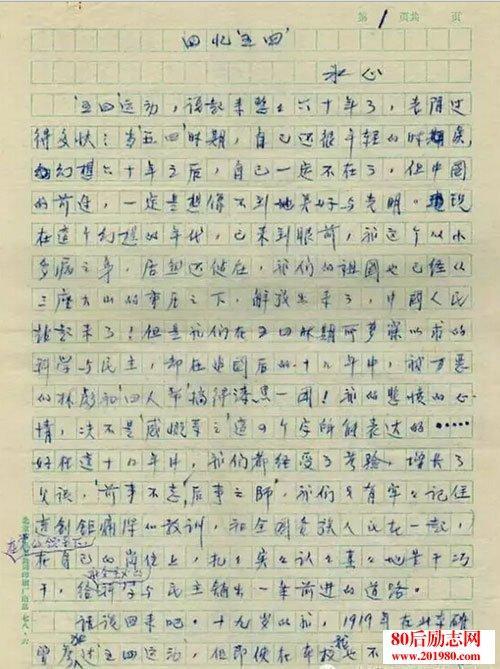 第 1 页共 页
回忆“五四”
冰心
“五四”运动,说起来整々六十年了,光阴过
得多快!当五四时期,自己还很年轻的时候,
幻想六十年之后,自己一定不在了,但中国
的前途,一定是想像不到地美好与光明。现
在这个幻想的年代,已来到眼前,我这个从小
多病之身,居然还健在,我们的祖国也已经从
三座大山的重压之下,解放出来了,中国人民
站起来了!但是我们在五四时期所梦寐以求的
科学与民主,却在建国后的十几年中,被万恶
的林彪和“四人帮”搞得漆黑一团!我的悲愤的心
情,决不是“感慨系之”这四个字所能表达的……
好在这十几年中,我们都经受了考验,增长了
见识,“前事不忘,后事之师”,我们只有牢々记住
这创鉅痛深的教训,和全国各族人民在一起,
在自己的岗位上,扎々实々认々真々地苦干巧
干,给科学与民主铺出一条前进的道路。
话说回来吧。十九岁的我,1919年在北京确
曾参过五四运动,但即使在本校我也不
80后励志网
www.201980.com